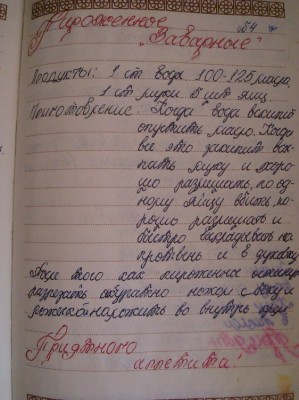 Пироженное
"Заварные"
Продукты: 1 ст вода 100-125 масло,
1 ст муки 5 шт яиц.
Приготовление: Когда вода вскипит
опустить масло. Когда
всё это закипит
муку и хоро-
шо размешать, по од-
ному яйцу вбить, хо-
рошо размешать и
быстро выкладывать на
противень и в духовку
После того как пироженые остынут
разрезать аккуратно ножом с боку и
во внутрь
Приятного
аппетита!